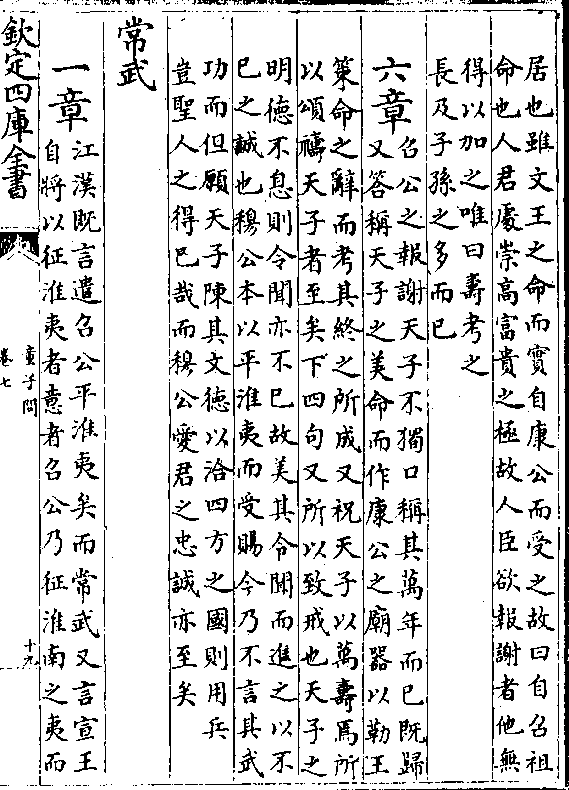 居也雖文王之命而實自康公而受之故曰自召祖
命也人君處崇高富貴之極故人臣欲報謝者他無
得以加之唯曰壽考之
長及子孫之多而已
六章
召公之報謝天子不獨口稱其萬年而已既歸
又答稱天子之美命而作康公之廟器以勒王
策命之辭而考其終之所成又祝天子以萬壽焉所
以頌禱天子者至矣下四句又所以致戒也天子之
明德不息則令聞亦不已故美其令聞而進之以不
已之誠也穆公本以平淮夷而受賜今乃不言其武
功而但願天子陳其文德以洽四方之國則用兵
豈聖人之得已哉而穆公愛君之忠誠亦至矣
常武
一章
江漢既言遣召公平淮夷矣而常武又言宣王
自將以征淮夷者意者召公乃征淮南之夷而
欽定四庫全書
童子問
卷七
十九